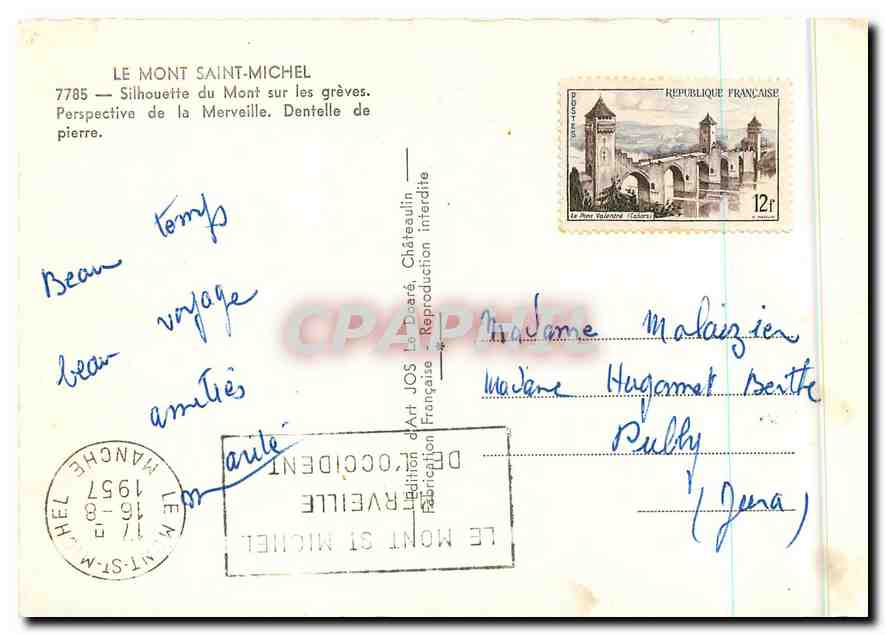 LE MONT SAINT-MICHEL
7785 — Silhouette du Mont sur les grèves.
Perspective de la Merveille. Dentelle de
pierre.
Beau temps
beau voyage
amitiés
L'Edition d'Art JOS Le Doaré, Châteaulin
Fabrication Française - Reproduction interdite
POSTES
REPUBLIQUE FRANÇAISE
Le Pont Valentré (Cahors)
12F
Madame Malaizier
Madame Hugonnet Berthe
Publy
(Jura)
LE MONT-ST-MICHEL
17 H
16-8
1957
MANCHE
LE MONT ST MICHEL
MERVEILLE
DE L'OCCIDENT
CPAPHIL